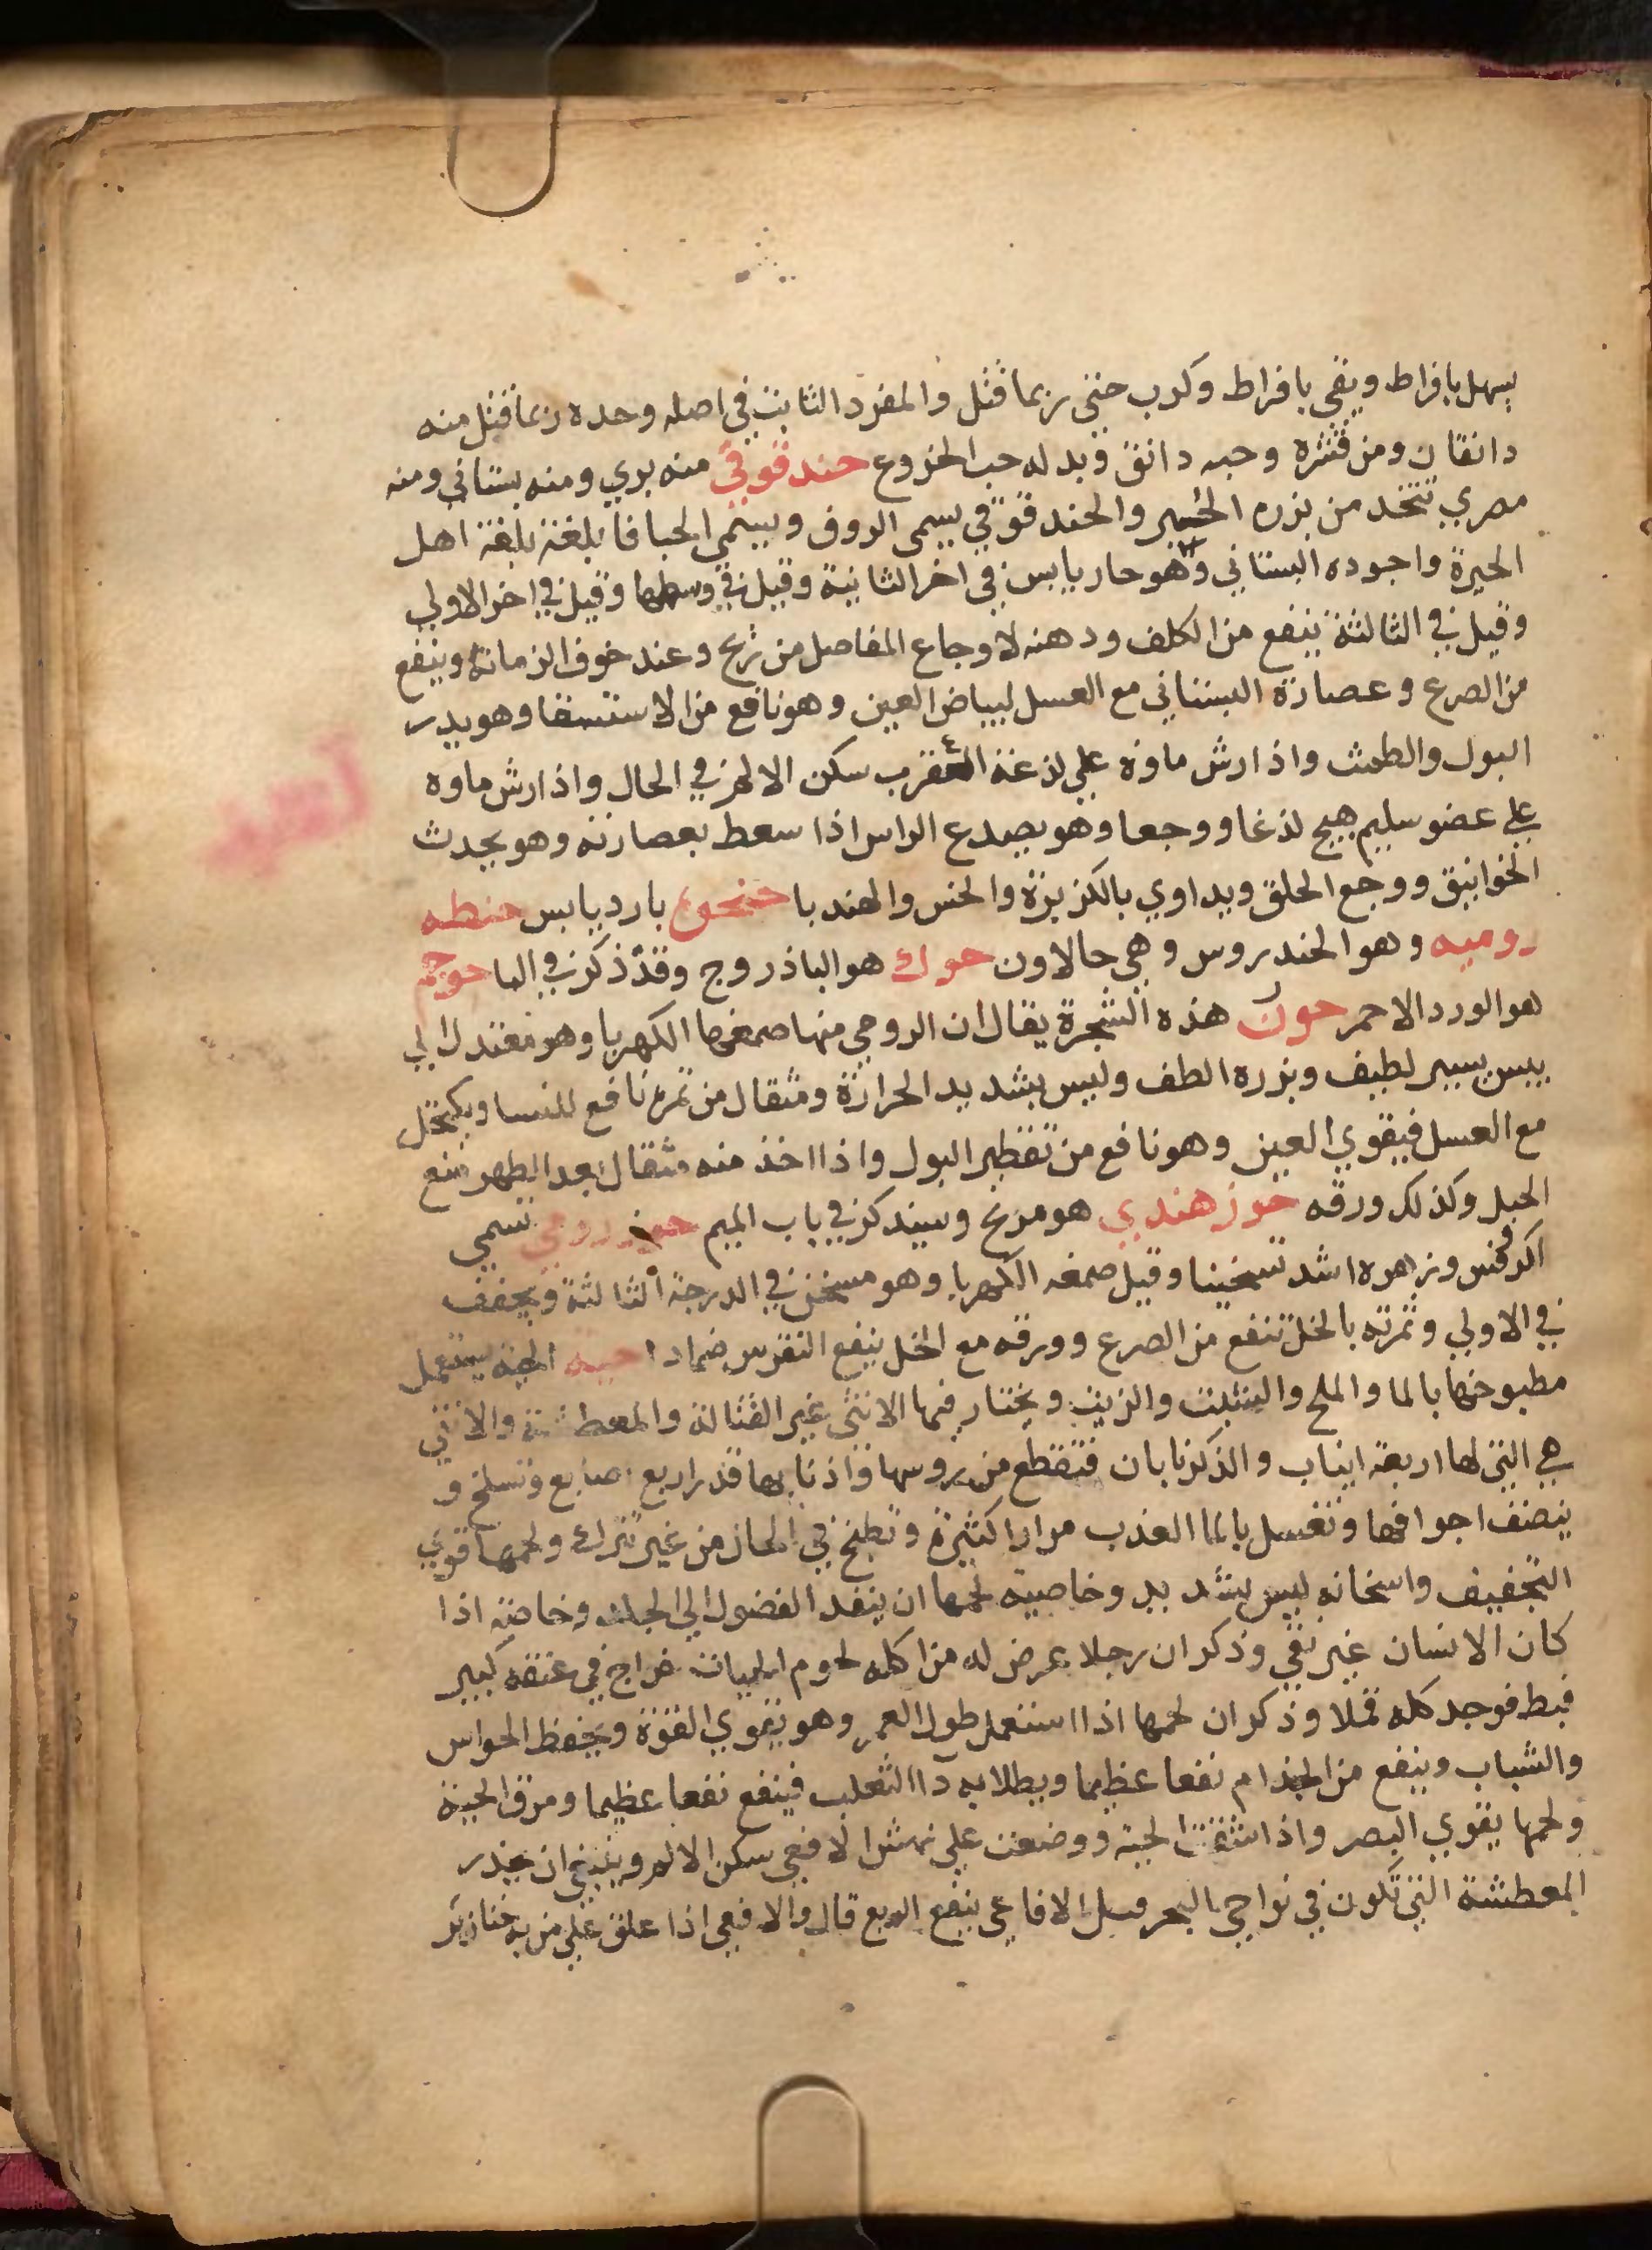 يسهل بافراط ويقي بافراط وكرب حتى ربما قتل والمفرد الثابت في اصله وحده ربما قتل منه
دانقان ومن قشره وحبه دانق وبدله حب الخروع حندقوقى منه بري ومنه بستاني ومنه
مصري تتخد من بزره الخبر والحندقوقي يسمى الروف ويسمى الحباقا بلغة بلغة اهل
الحيرة واجوده البستاني وهو حار يابس في اخر الثانية وقيل في وسطها وقيل في اخر الاولي
وقيل في الثالثة ينفع من الكلف ودهنه لاوجاع المفاصل من ريح وعند خوف الزمانة وينفع
من الصرع وعصارة البستاني مع العسل لبياض العين وهو نافع من الاستسقا وهو يدر
البول والطمث واذا رش ماوه علي لذغة العقرب سكن الالم في الحال واذا رش ماوه
علي عضو سليم هيج لذغا ووجعا وهو يصدع الراس اذا سعط بعصارته وهو يحدث
الخوانيق ووجع الحلق ويداوي بالكزبزة والخس والهندبا بارد يابس حنطه
روميه وهو الخندروس وهي حالاون حوك هو الباذروج وقد ذكر في البا حوجم
هو الورد الاحمر حور هذه الشجرة يقال ان الرومي منها صمغها الكهربا وهو معتدل الي
يبس يسير لطيف وبزره الطف وليس بشديد الحرارة ومثقال من ثمره نافع للنسا ويكتحل
مع العسل فيقوي العين وهو نافع من تقطير البول واذا اخذ منه مثقال بعد الطهر منع
الحبل وكذلك ورقه حوز هندي هو مرنح وسيذكر في باب الميم حوز رومي تسمي
اكرفس وزهره اشد تسخينا وقيل صمغه الكهربا وهو مسخن في الدرجة الثالثة ويجفف
في الاولي وثمرته بالخل تنفع من الصرع وورقه مع الخل ينفع النقرس ضمادا حيه الحية يستعمل
مطبوخها بالما والملح والشبت والزيت ويختار فيها الانثي غير القتالة والمعطشة والانثي
هي التي لها اربعة انياب والذكر نابان فتقطع من روسها واذنابها قدر اربع اصابع وتسلخ و
ينصف اجوافها وتغسل بالما العذب مرارا كثيرة وتطبخ في الحال من غير تراك ولحمها قوي
التجفيف واسخانه ليس بشديد وخاصية لحمها ان ينفد الفضول الي الجلد وخاصة اذا
كان الانسان غير نقي وذكر ان رجلا عرض له من اكله لحوم الحيات خراج في عنقه كبير
فبط فوجد كله قملا وذكر ان لحمها اذا استعمل طول العمر وهو يقوي القوة ويحفظ الحواس
والشباب وينفع من الجذام نفعا عظيما ويطلا به دا الثعلب فينفع نفعا عظيما ومرق الحية
ولحمها يقوي البصر واذا شقت الحية ووضعت علي نهش الافعي سكن الالم وينبغي ان يحذر
المعطشة التي تكون في نواحي البحر الافاعي ينفع الربع قال والافعي اذا علق علي من به خنازير